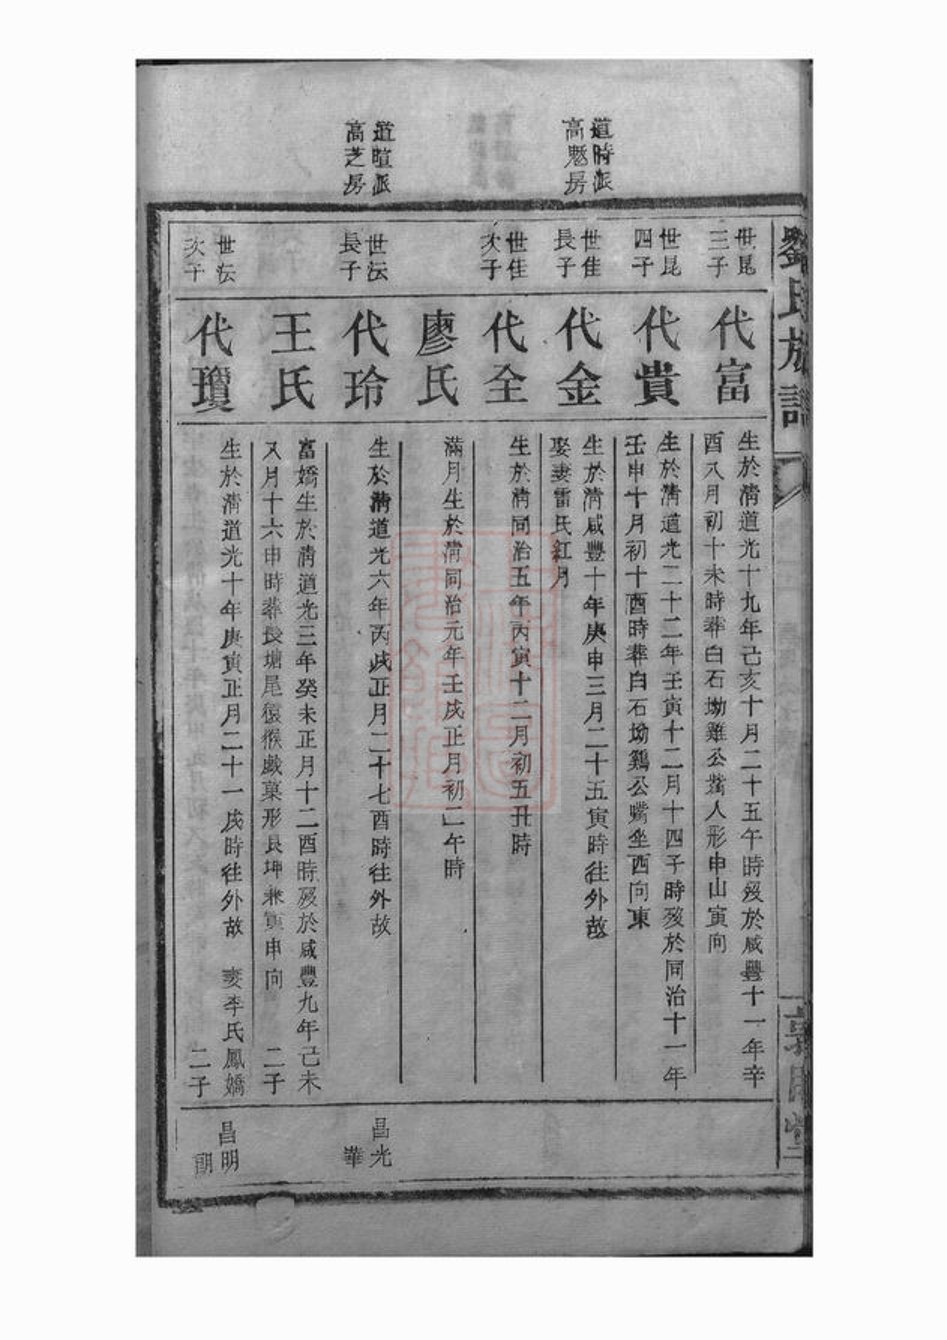 劉氏族譜
道時派
高魁房
道暄派
高芝房
世昆
三子
代富
生於清道光十九年己亥十月二十五午時歿於咸豐十一年辛
酉八月初十未時葬白石坳雞公嘴人形申山寅向
世昆
四子
代貴
生於清道光二十二年壬寅十二月十四子時歿於同治十一年
壬申十月初十酉時葬白石坳鷄公嘴坐西向東
世佳
長子
代金
生於清咸豐十年庚申三月二十五寅時往外故
娶妻雷氏紅月
世佳
次子
代全
生於清同治五年丙寅十二月初五丑時
廖氏
滿月生於清同治元年壬戌正月初二午時
世沄
長子
代玲
生於清道光六年丙戌正月二十七酉時往外故
昌光
華
王氏
富嬌生於清道光三年癸未正月十二酉時歿於咸豐九年己未
八月十六申時葬長塘尾猴戲菓形艮坤兼寅申向 二子
世沄
次子
代瓊
生於清道光十年庚寅正月二十一戌時往外故 妻李氏鳳嬌
二子
昌明
朗